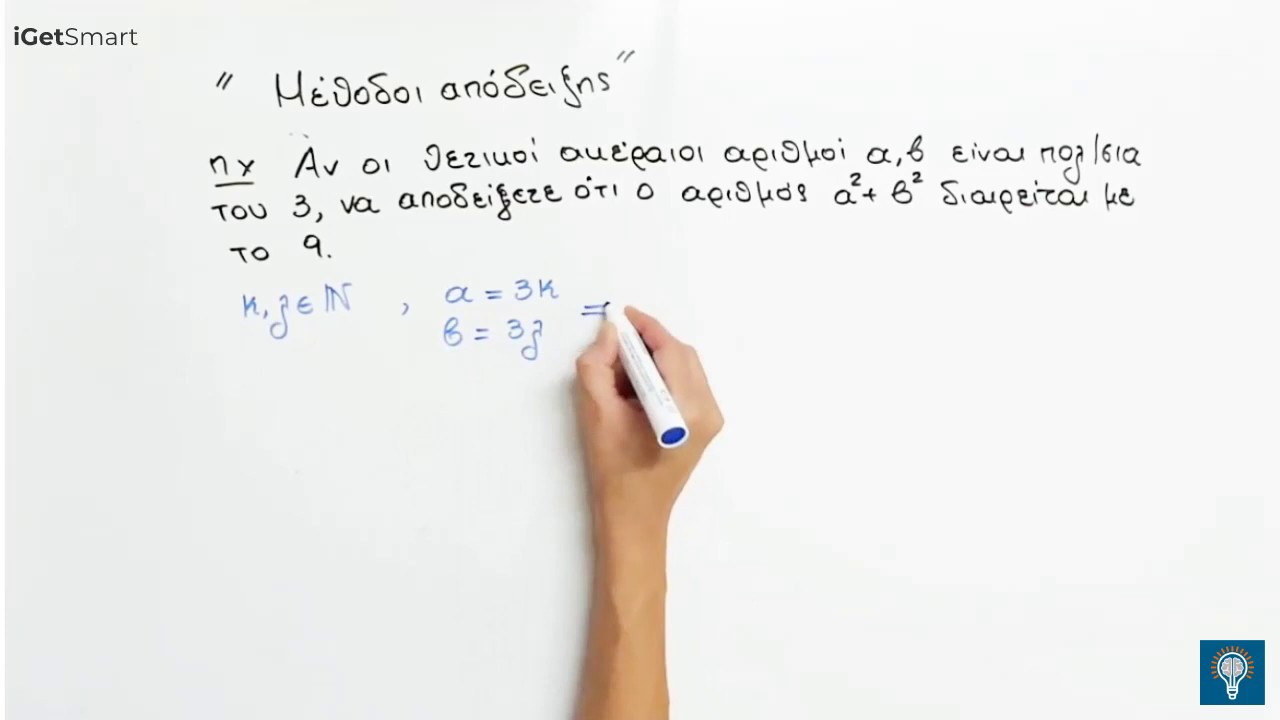 iGetSmart
" Μέθοδοι απόδειξης "
πχ Αν οι θετικοί ακέραιοι αριθμοί α, β είναι πολ/σια
του 3, να αποδείξετε ότι ο αριθμός α²+ β² διαιρείται με
το 9.
κ, λ ∈ ℕ , α = 3κ
β = 3λ =